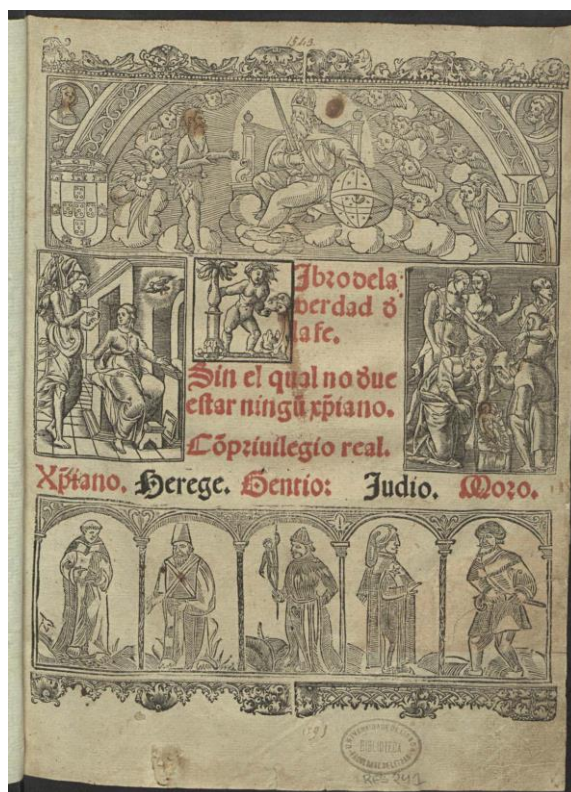 1543
Libro de la
verdad đ
la fe.
Sin el qual no đue
estar ningũ xp̃iano.
Cõ priuilegio real.
Xp̃iano. Herege. Gentio: Judio. Moro.
BIBLIOTECA
RES 241